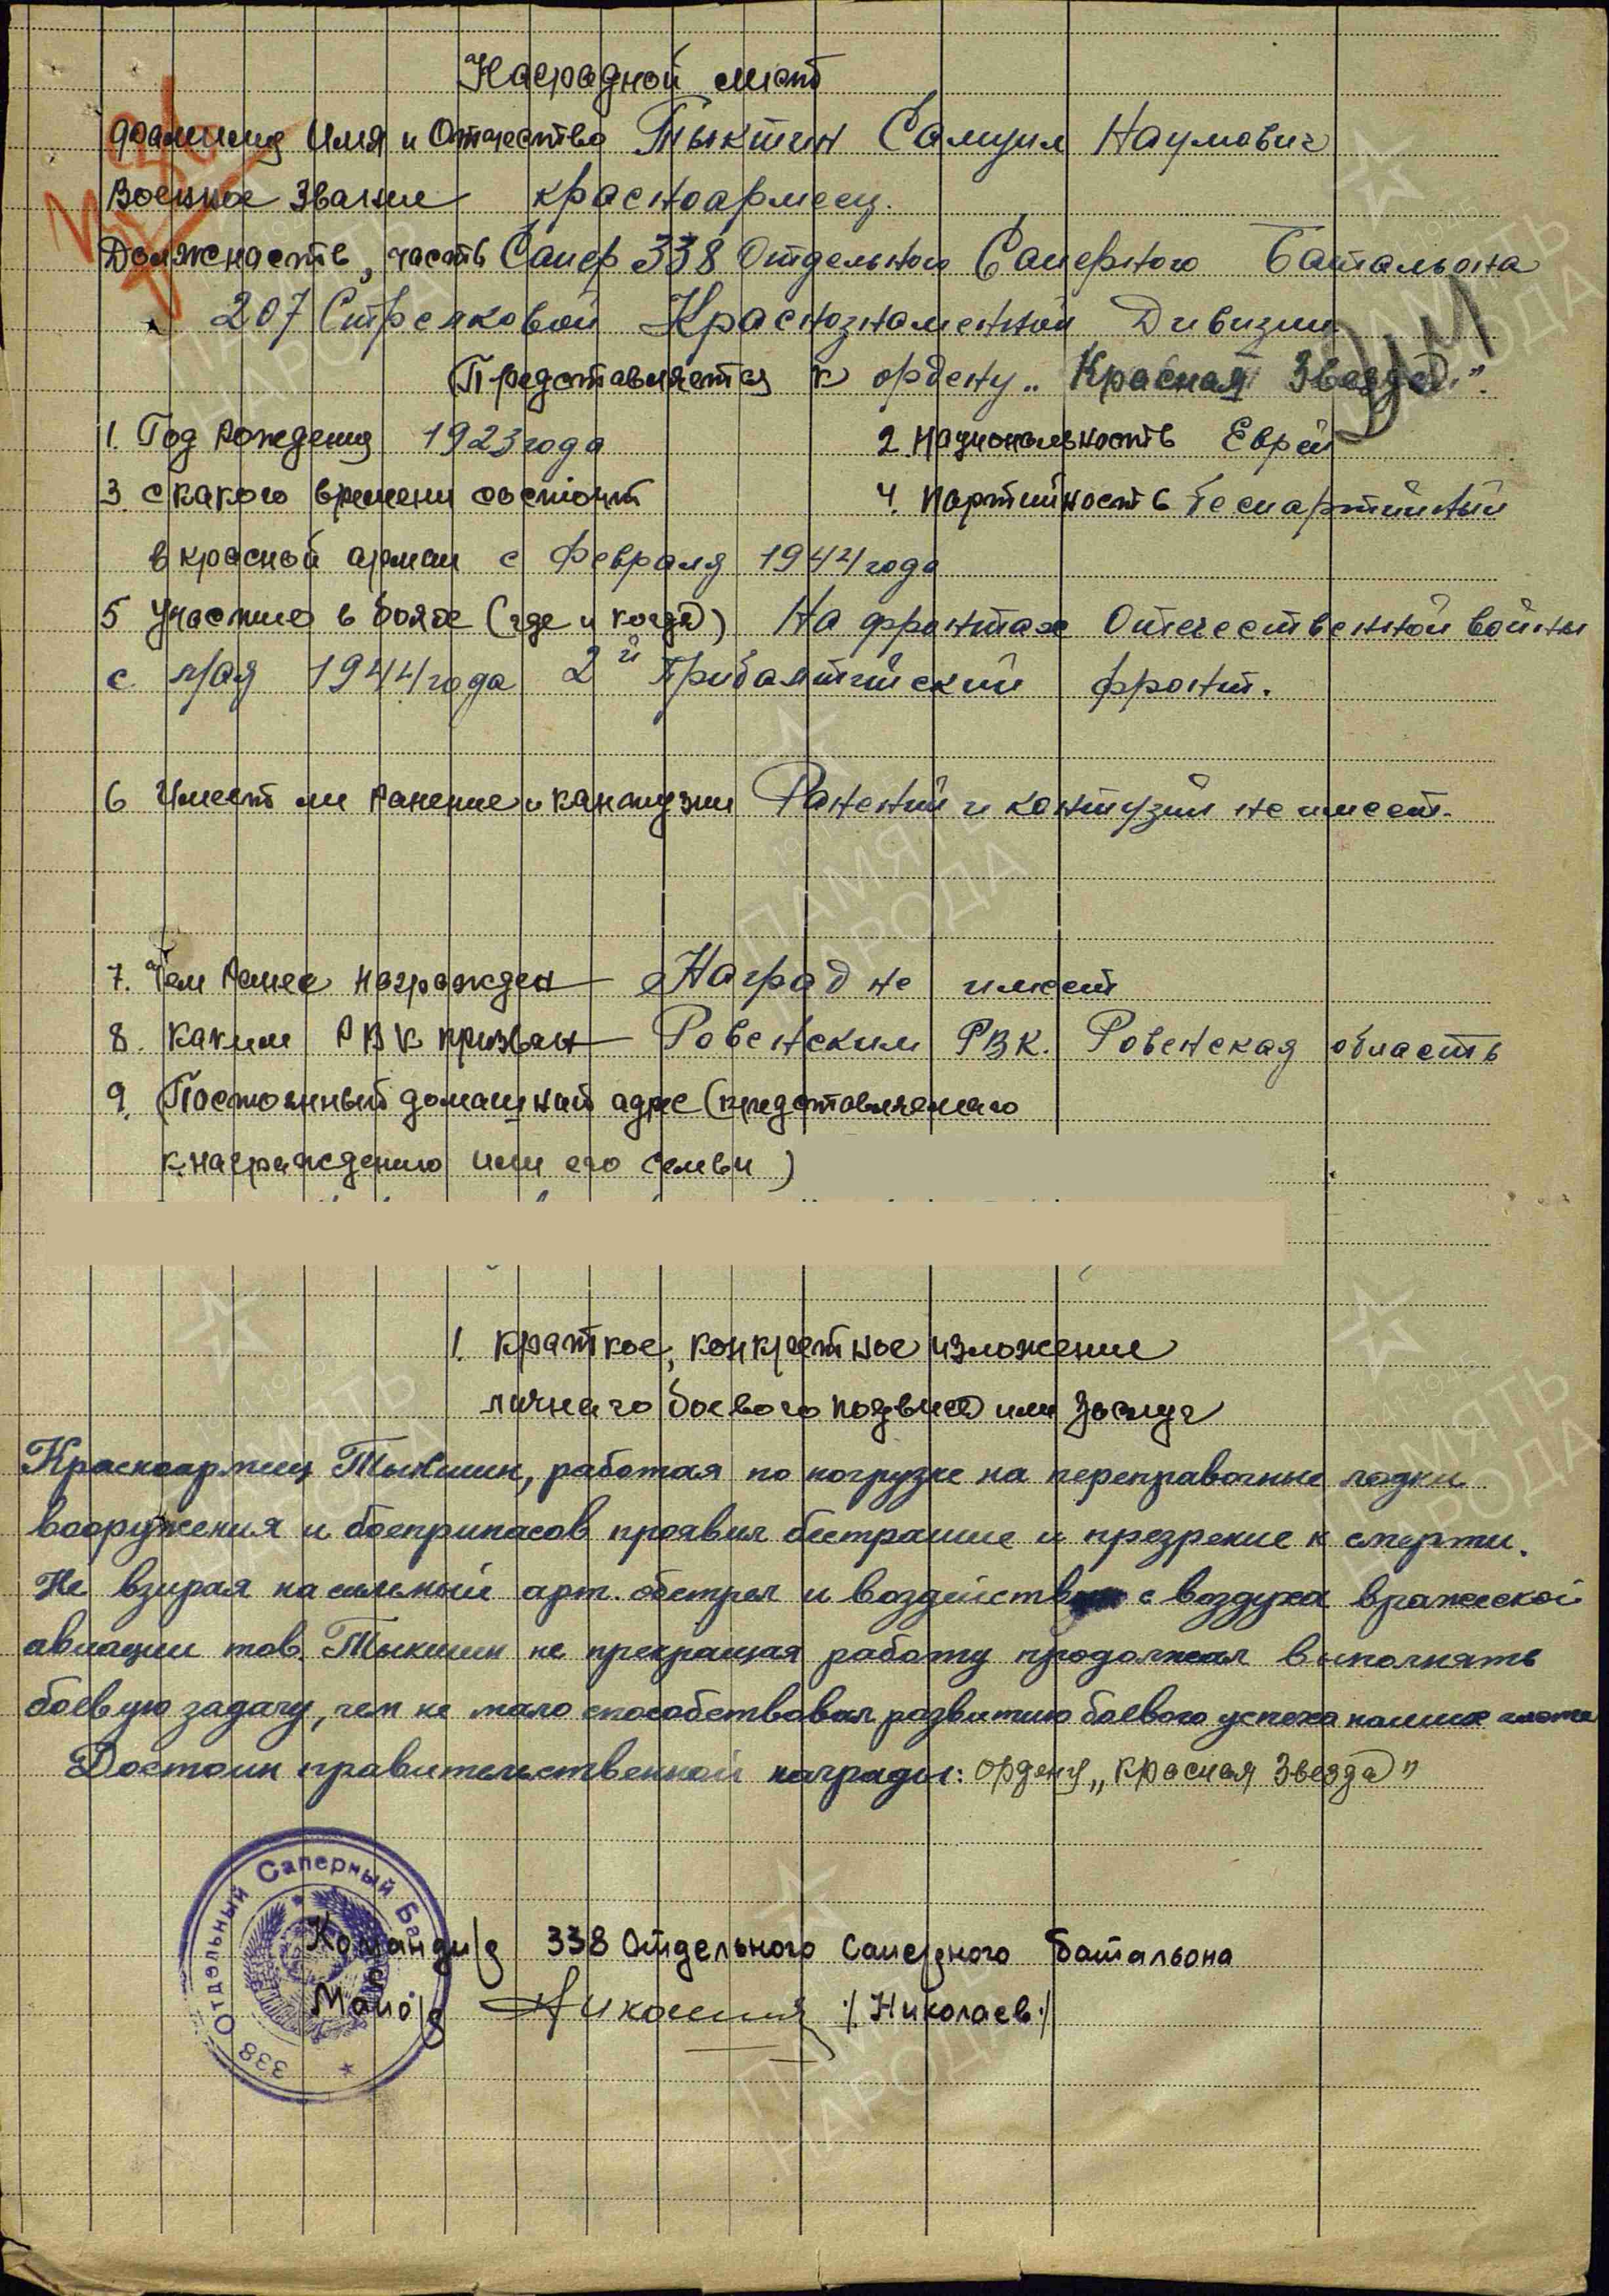 Наградной лист
Фамилия Имя и Отчество Тыктин Самуил Наумович
Военное Звание красноармеец.
Должность, часть Сапер 338 Отдельного Саперного Батальона
207 Стрелковой Краснознаменной Дивизии
Представляется к ордену „Красная Звезда".
1. Год Рождения 1923 года 2. Национальность Еврей
3. с какого времени состоит 4. Партийность беспартийный
в красной армии с февраля 1944 года
5 Участие в боях (где и когда) На фронтах Отечественной войны
с мая 1944 года 2й Прибалтийский фронт.
6 Имеет ли Ранение и кантузии Ранений и контузий не имеет.
7. Чем Ранее награжден Наград не имеет
8. Каким РВК призван Ровенским РВК. Ровенская область
9. Постоянный домашний адрес (представляемого
к награждению или его семьи)
1. краткое, конкретное изложение
личного боевого подвига или заслуг
Красноармеец Тыктин, работая по погрузке на переправочные лодки
вооружения и боеприпасов проявил бестрашие и презрение к смерти.
Не взирая на сильный арт. обстрел и воздейств с воздуха вражеской
авиации тов. Тыктин не прекращая работу продолжал выполнять
боевую задачу, чем не мало способствовал развитию боевого успеха наших частей
Достоин правительственной награды: ордену „Красная Звезда"
Командир 338 Отдельного Саперного Батальона
Майор /Николаев/
338 Отдельный Саперный Ба
ПАМЯТЬ
НАРОДА